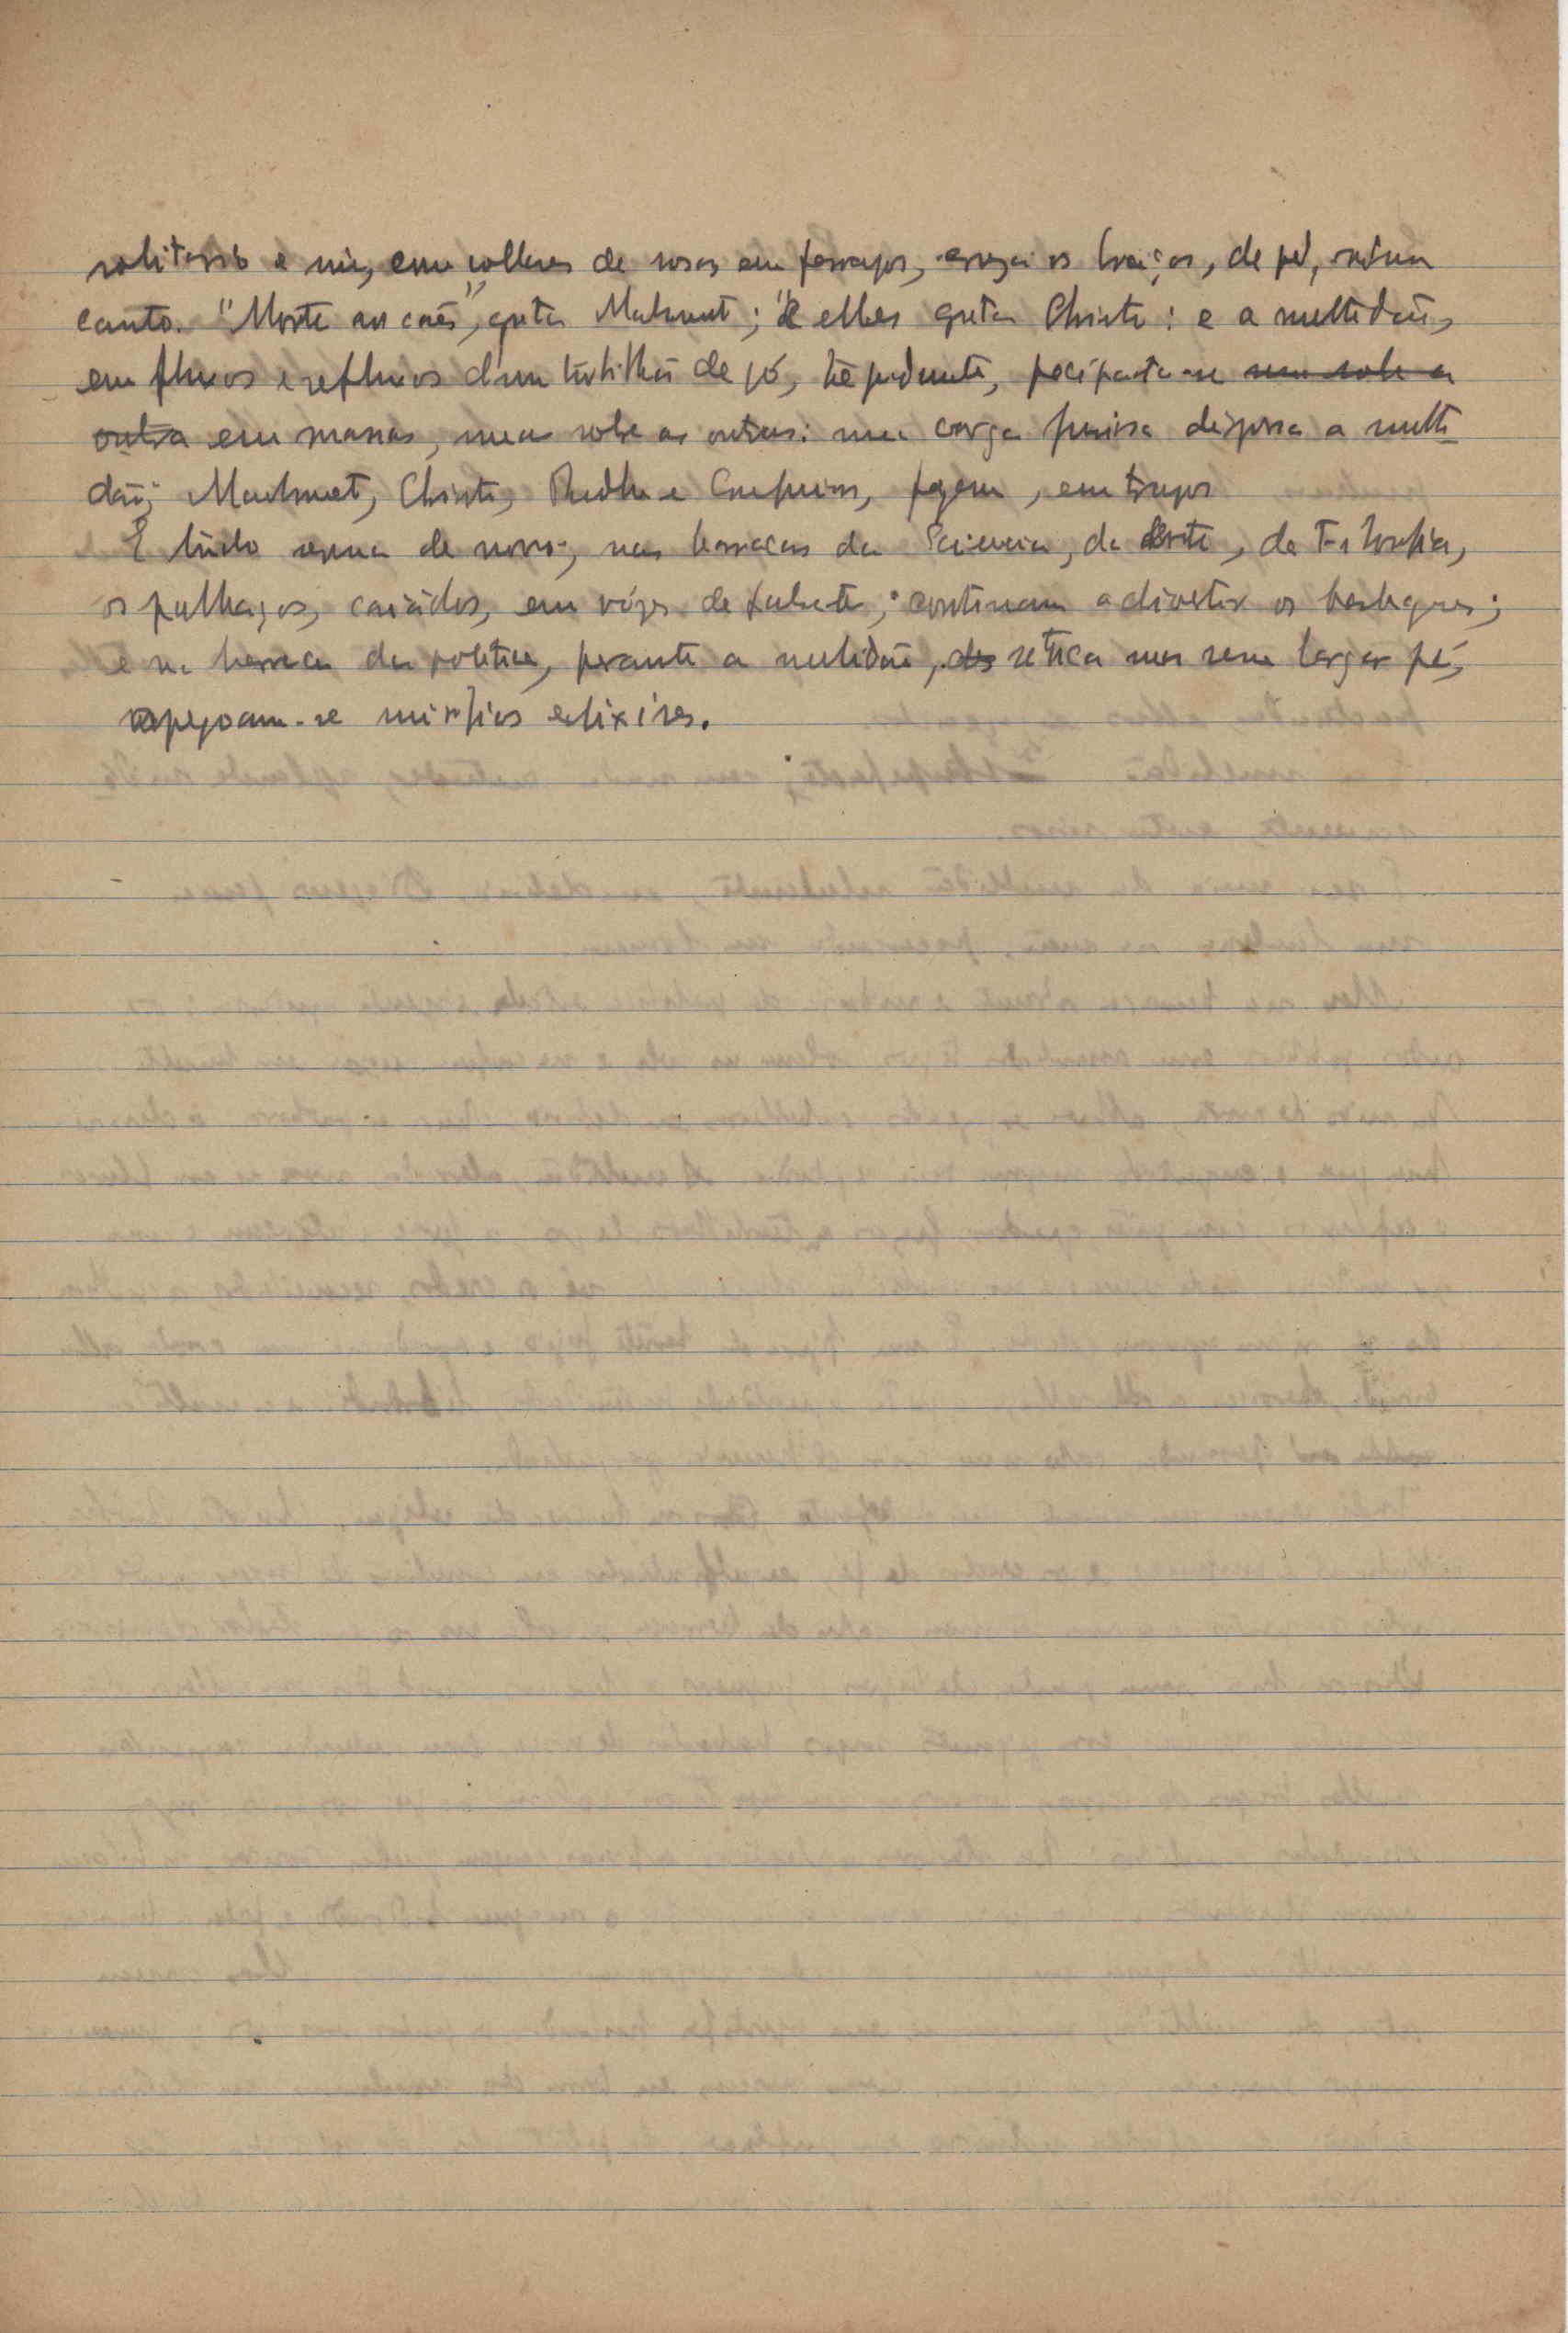 solitario e nu, com collares de rosas em farrapos, cruza os braços, de pé, num
canto. "Morte aos cães", grita Mahomet; "a elles" grita Christo: e a multidão,
em fluxos e refluxos d'um turbilhão de pó, precipita-se uma sobre a
outra em massas, umas sobre as outras: uma carga furiosa dispersa a multi
dão; Mahomet, Christo, Budha e Confucius, fogem, em trapos
E tudo reprisa de novo; nas barracas da Sciencia, da Arte, da Filosofia,
os palhaços, caiados, em vózes de falsete; continuam a divertir os basbaques;
e na barraca da politica, perante a multidão, sética mas sem largar pé,
apregoam-se mirificos elixires.